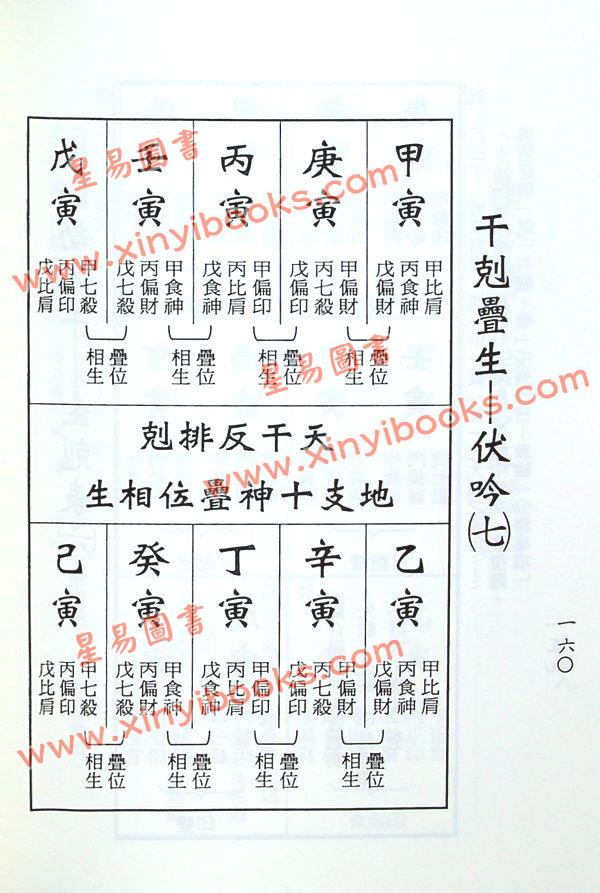 干剋疊生--伏吟(七)
一六〇
甲寅
甲比肩
丙食神
戊偏財
庚寅
甲偏財
丙七殺
戊偏印
丙寅
甲偏印
丙比肩
戊食神
壬寅
甲食神
丙偏財
戊七殺
戊寅
甲七殺
丙偏印
戊比肩
疊位
相生
疊位
相生
疊位
相生
疊位
相生
天干反排剋
地支十神疊位相生
乙寅
甲比肩
丙食神
戊偏財
辛寅
甲偏財
丙七殺
戊偏印
丁寅
甲偏印
丙比肩
戊食神
癸寅
甲食神
丙偏財
戊七殺
己寅
甲七殺
丙偏印
戊比肩
疊位
相生
疊位
相生
疊位
相生
疊位
相生
星易圖書
www.xinyibooks.com
星易圖書
www.xinyibooks.com
星易圖書
www.xinyibooks.com